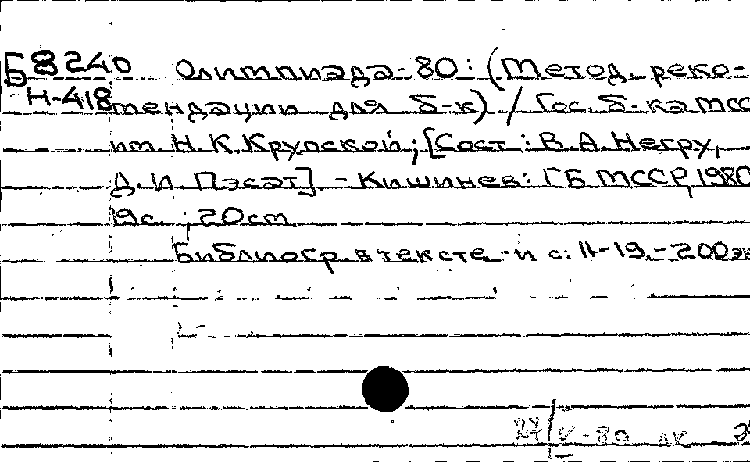 Б8240 Олимпиада-80: (Метод. реко-
Н-418 мендации для б-к) / Гос. б-ка МСС
им. Н.К.Крупской; [Сост.: В.А.Негру,
Д.И.Пэсэт]. - Кишинев: ГБ МССР, 1980
19с.; 20см
Библиогр. в тексте и с. 11-19. - 200 эк